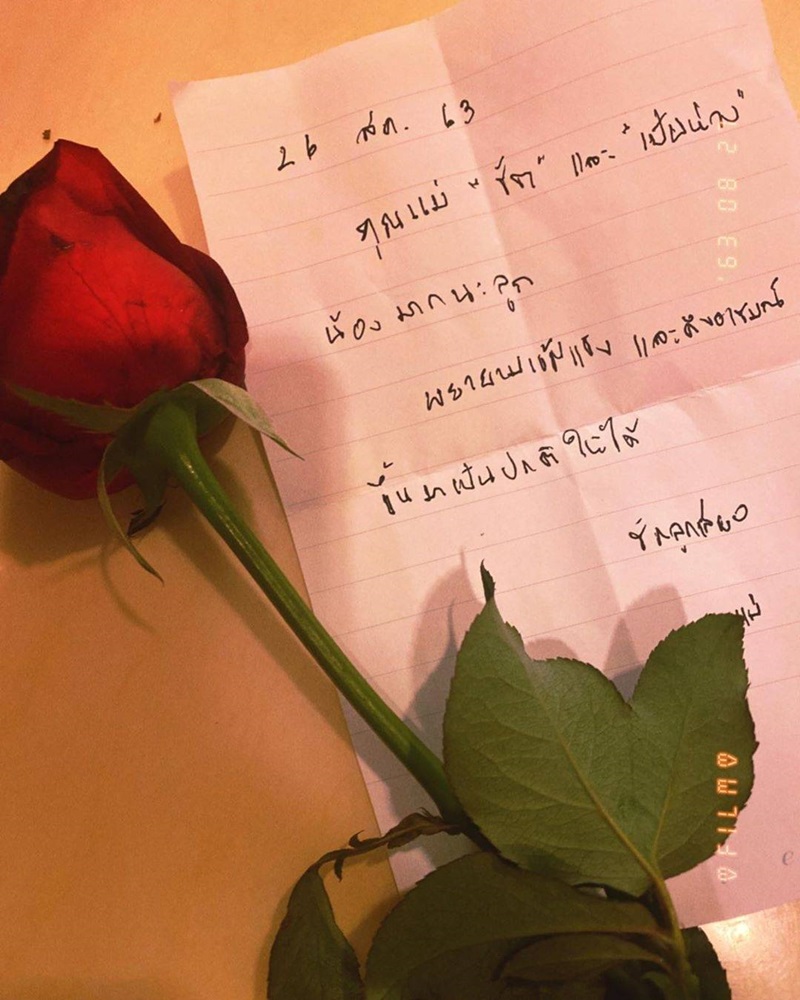 26 สค. 63
คุณแม่ "รัก" และ "เป็นห่วง"
น้องมากนะลูก
พยายามเข้มแข็ง และดึงอารมณ์
ขึ้นมาเป็นปกติให้ได้
รักลูกเสมอ
แม่
'63 08 2
FILM